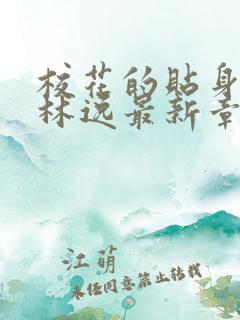 校花的贴身
林逸最新章
江萌
未经同意禁止转载